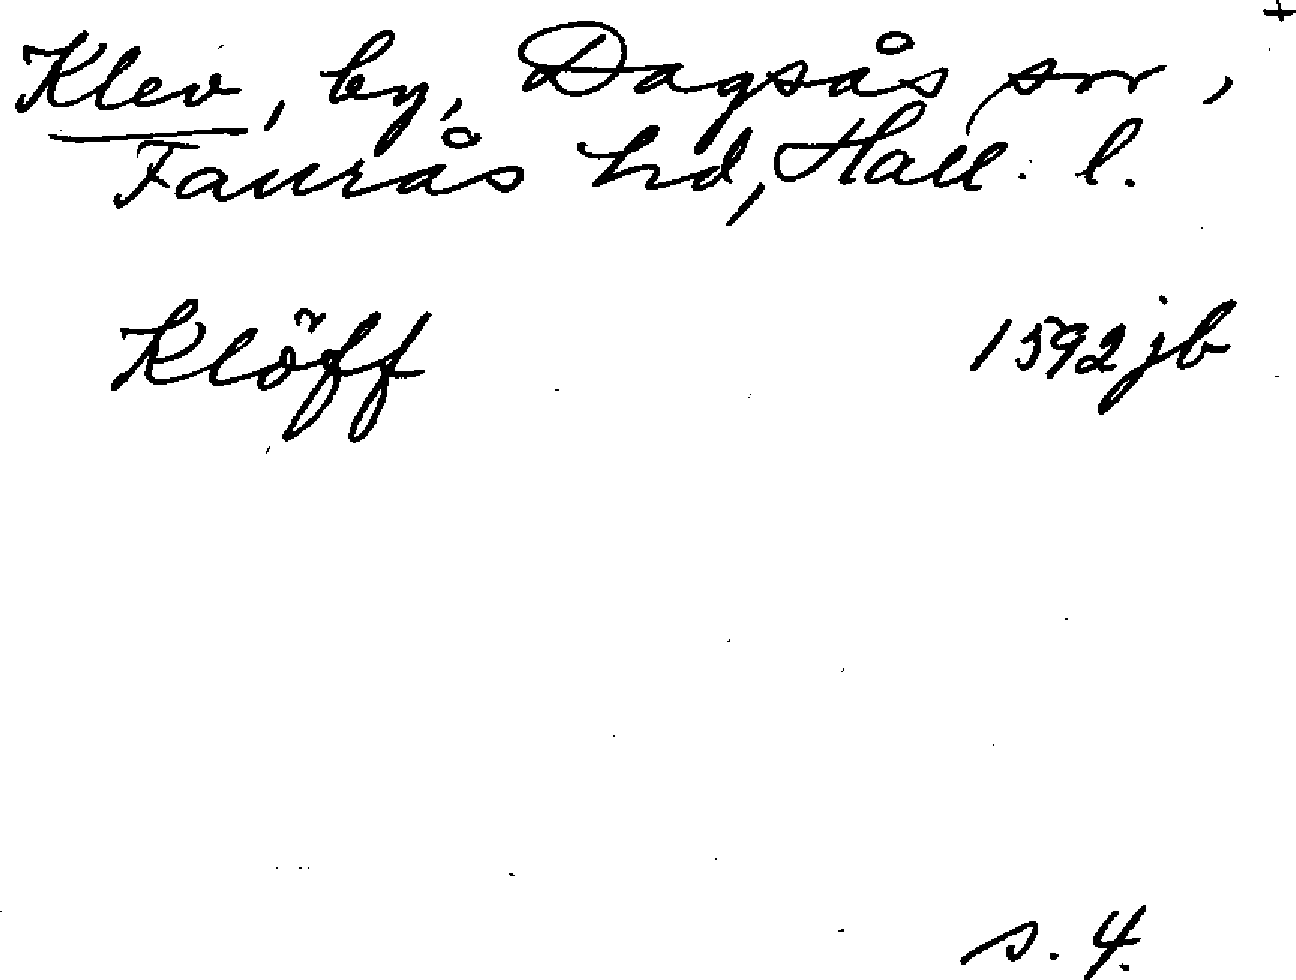 +
Klev, by, Dagsås sn,
Faurås hd, Hall. l.
Klöff 1592 jb
s. 4.